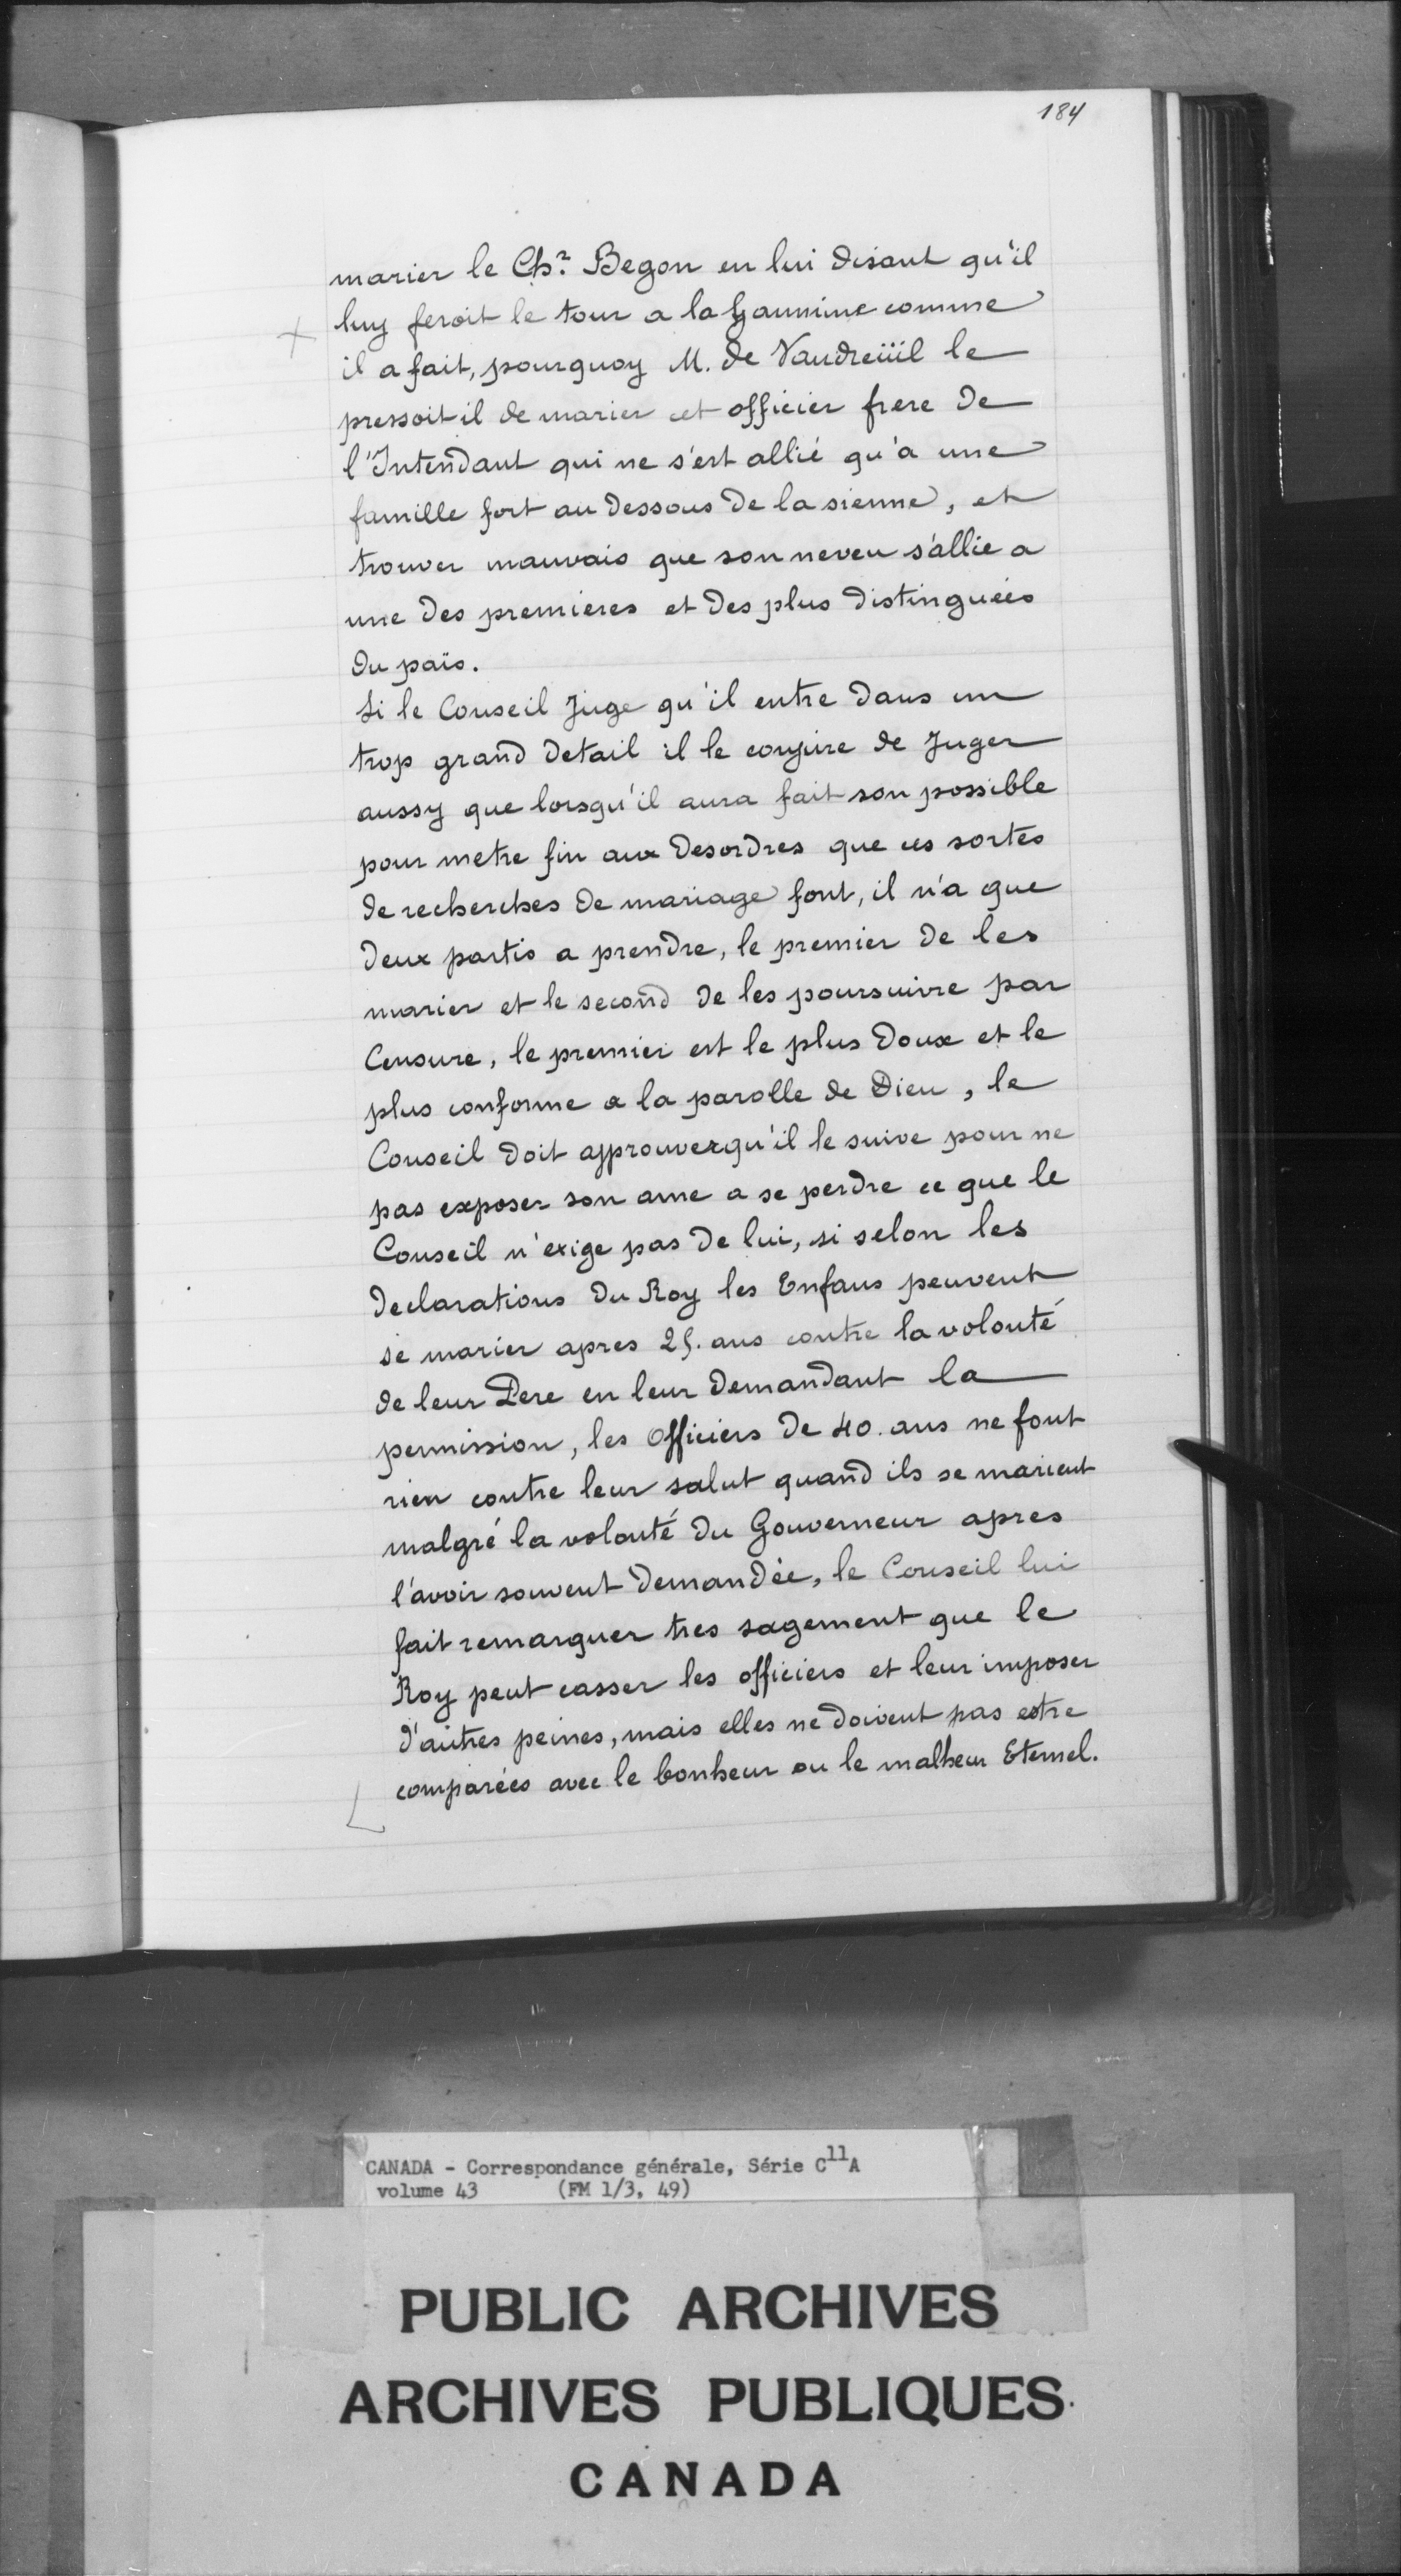 184
marier le Chr. Begon en lui disant qu'il
luy feroit le tour a la Gaumine comme
il a fait, pourquoy M. de Vaudreüil le
pressoit il de marier cet officier frere de
l'Intendant qui ne s'est allié qu'à une
famille fort au dessous de la sienne, et
trouver mauvais que son neveu s'allie a
une des premieres et des plus distinguées
du païs.
Si le Conseil Juge qu'il entre dans un
trop grand detail il le conjure de Juger
aussy que lorsqu'il aura fait son possible
pour metre fin aux desordres que ces sortes
de recherches de mariage font, il n'a que
deux partis a prendre, le premier de les
marier et le second de les poursuivre par
Censure, le premier est le plus doux et le
plus conforme a la parolle de Dieu, le
Conseil doit approuver qu'il le suive pour ne
pas exposer son ame a se perdre ce que le
Conseil n'exige pas de lui, si selon les
declarations du Roy les Enfans peuvent
se marier apres 25. ans contre la volonté
de leur Pere en leur demandant la
permission, les Officiers de 40. ans ne font
rien contre leur salut quand ils se marient
malgré la volonté du Gouverneur apres
l'avoir souvent demandée, le Conseil lui
fait remarquer tres sagement que le
Roy peut casser les officiers et leur imposer
d'autres peines, mais elles ne doivent pas estre
comparées avec le bonheur ou le malheur Eternel.
CANADA - Correspondance générale, Série C11A
volume 43 (FM 1/3, 49)
PUBLIC ARCHIVES
ARCHIVES PUBLIQUES
CANADA